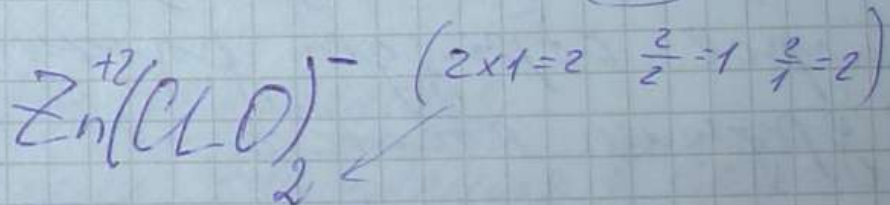 Zn⁺²(ClO)⁻₂ (2×1=2 2/2=1 2/1=2)